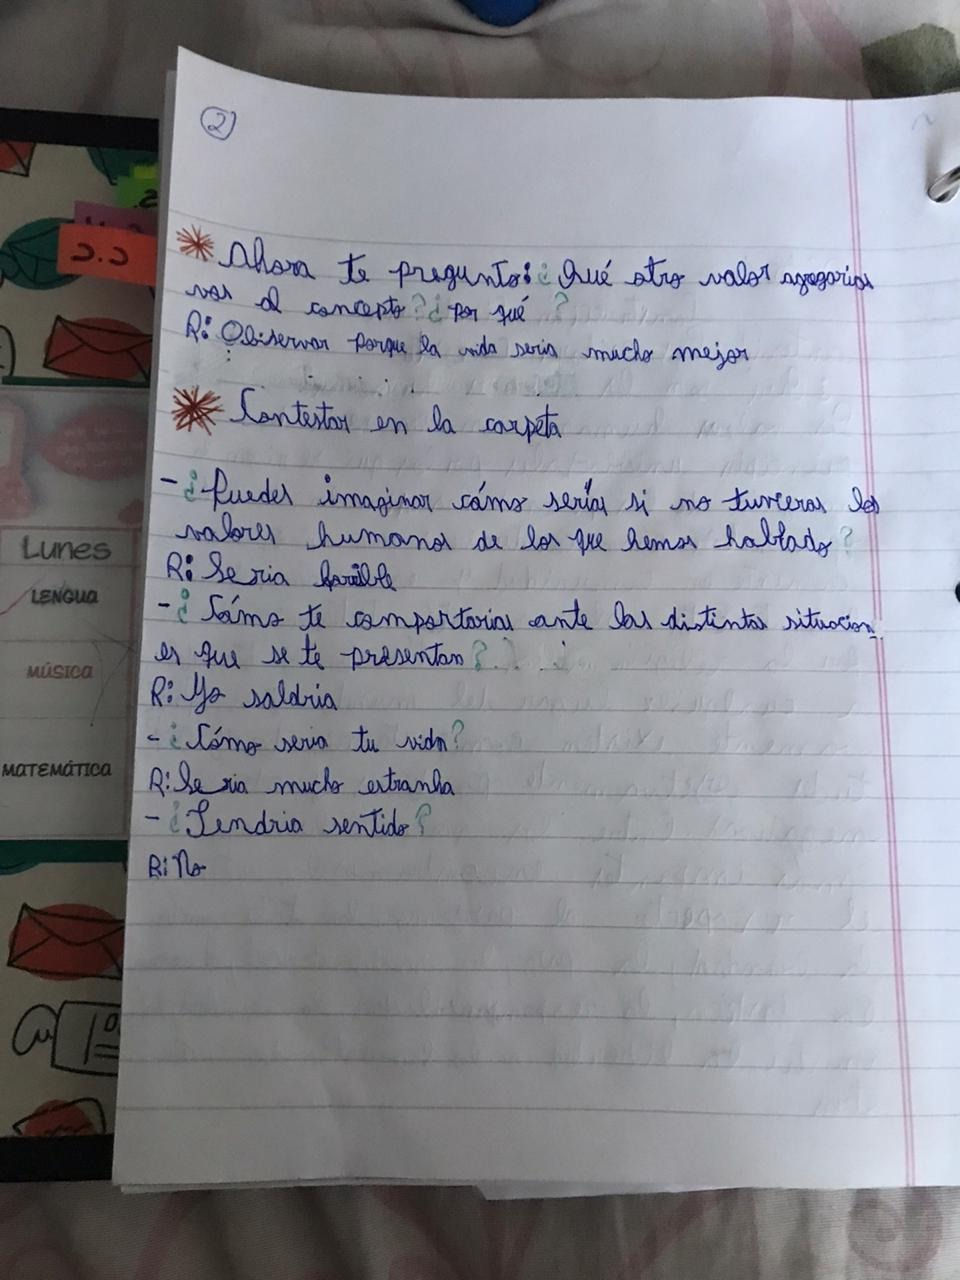 2
Ahora te pregunto: ¿Qué otro valor agregarias
vos al concepto? ¿por qué?
R: Observar porque la vida seria mucho mejor
Contestar en la carpeta
- ¿Puedes imaginar cómo serías si no tuvieras los
valores humanos de los que hemos hablado?
R: Seria horrible
- ¿Cómo te comportarias ante las distintas situacion
es que se te presentan?
R: Yo saldria
- ¿Cómo seria tu vida?
R: Seria mucho estranha
- ¿Tendria sentido?
R: No
C.C
Lunes
LENGUA
MÚSICA
MATEMÁTICA
1º